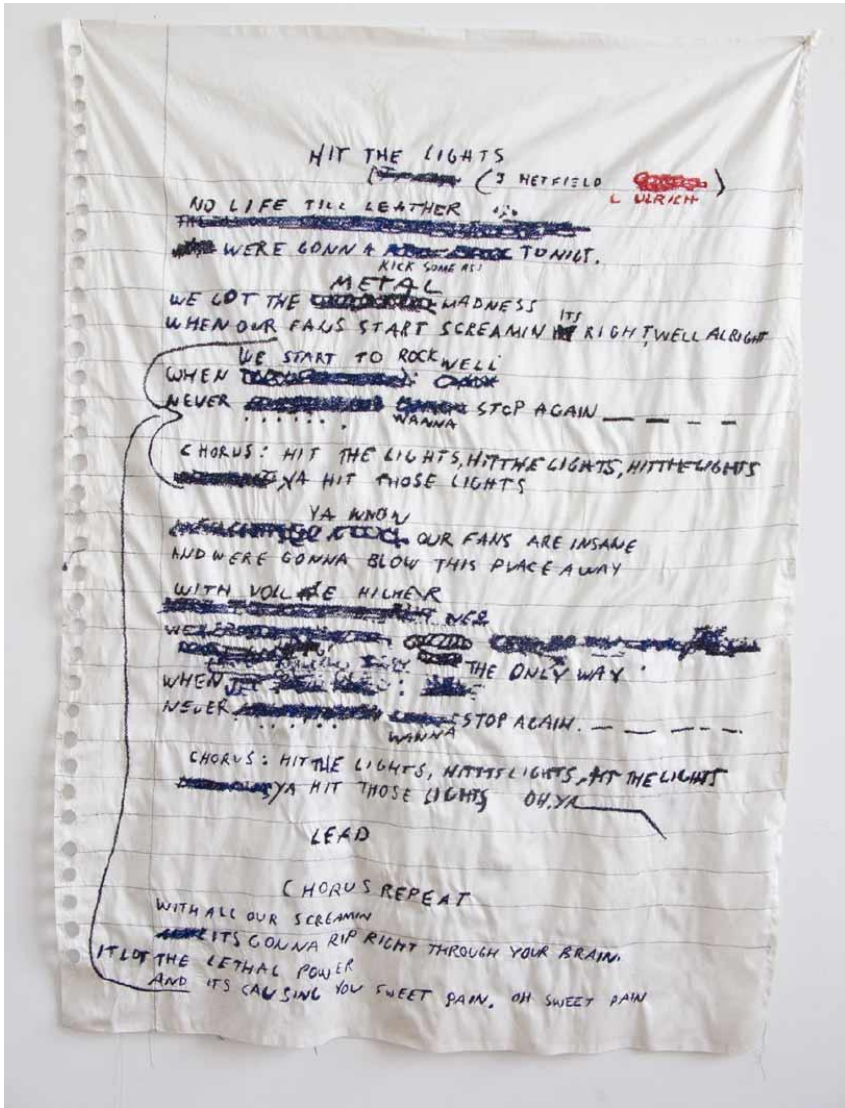 HIT THE LIGHTS
(J HETFIELD )
L ULRICH
NO LIFE TILL LEATHER
WERE GONNA TONIGT.
KICK SOME AS!
METAL
WE GOT THE MADNESS
ITS
WHEN OUR FANS START SCREAMIN RIGHT, WELL ALRIGHT
WE START TO ROCK WELL
WHEN
NEVER STOP AGAIN _ _ _ _
WANNA
CHORUS: HIT THE LIGHTS, HIT THE LIGHTS, HIT THE LIGHTS
YA HIT THOSE LIGHTS
YA KNOW
OUR FANS ARE INSANE
AND WERE GONNA BLOW THIS PLACE AWAY
WITH HIGHER
NER
THE ONLY WAY
WHEN
NEVER STOP AGAIN. _ _ _ _
WANNA
CHORUS: HIT THE LIGHTS, LIGHTS, HIT THE LIGHTS
YA HIT THOSE LIGHTS OH.YA
LEAD
CHORUS REPEAT
WITH ALL OUR SCREAMIN
ITS GONNA RIP RIGHT THROUGH YOUR BRAIN.
IT GOT THE LETHAL POWER
AND ITS CAUSING YOU SWEET PAIN. OH SWEET PAIN